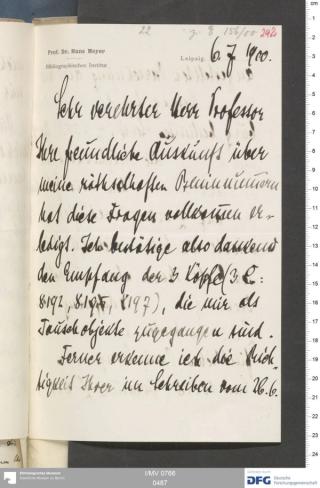 22
z. E 156/00
242
Prof. Dr. Hans Meyer
Bibliographisches Institut
Leipzig, 6. 7. 1900.
Sehr verehrter Herr Professor
Ihre freundliche Auskunft über
meine räthselhaften Beninnummern
hat diese Fragen vollkommen er-
ledigt. Ich bestätige also dankend
den Empfang der 3 Köpfe (3 C:
8192, 8195, 8197), die mir als
Tauschobjekte zugegangen sind.
Ferner erkenne ich die Rich-
tigkeit Ihrer im Schreiben vom 26. 6.
Ethnologisches Museum
Staatliche Museen zu Berlin
I/MV 0766
0487
DFG Deutsche
Forschungsgemeinschaft